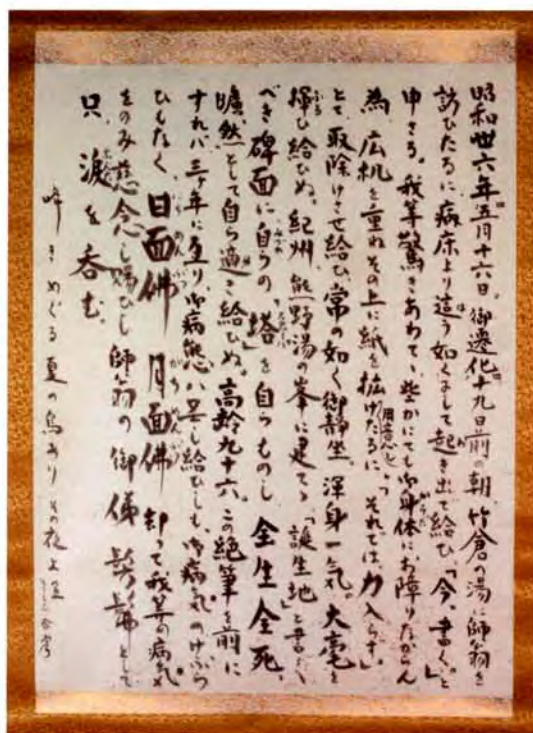 昭和卅六年五月十六日、御遷化十九日前の朝、竹倉の湯に師翁を
訪ひたるに病床より這う如くにして起き出で給ひ、「今、書く。」と
申さる。我等驚きあわてゝ、些かにても御身体にお障りなからん
為、広机を重ねその上に紙を拡げたるに、「それでは、力入らず。」
用意と
とて、取除けさせ給ひ、常の如く御静坐。渾身一気。大毫を
揮ひ給ひぬ。紀州、熊野湯の峯に建てる、「誕生地」と書く
べき碑面に自らの「塔」を自らものし、全生全死、
曠然として自ら適き給ひぬ。高齢九十六。この絶筆を前に
すれバ、三ヶ年に亙り、御病態ハ呈し給ひしも、御病気のけぶら
ひもなく、日面佛 月面佛 却って我等の病気
をのみ慈念し賜ひし師翁の御俤 髣髴として
只、涙を呑む。
啼きめぐる夏の鳥ありその夜上